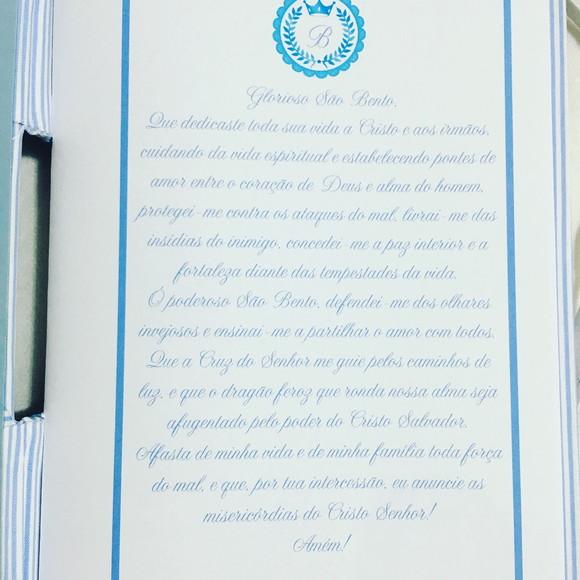 B
Glorioso São Bento,
Que dedicaste toda sua vida a Cristo e aos irmãos,
cuidando da vida espiritual e estabelecendo pontes de
amor entre o coração de Deus e alma do homem,
protegei-me contra os ataques do mal, livrai-me das
insídias do inimigo, concedei-me a paz interior e a
fortaleza diante das tempestades da vida.
Ó poderoso São Bento, defendei-me dos olhares
invejosos e ensinai-me a partilhar o amor com todos.
Que a Cruz do Senhor me guie pelos caminhos de
luz, e que o dragão feroz que ronda nossa alma seja
afugentado pelo poder do Cristo Salvador.
Afasta de minha vida e de minha família toda força
do mal, e que, por tua intercessão, eu anuncie as
misericórdias do Cristo Senhor!
Amém!